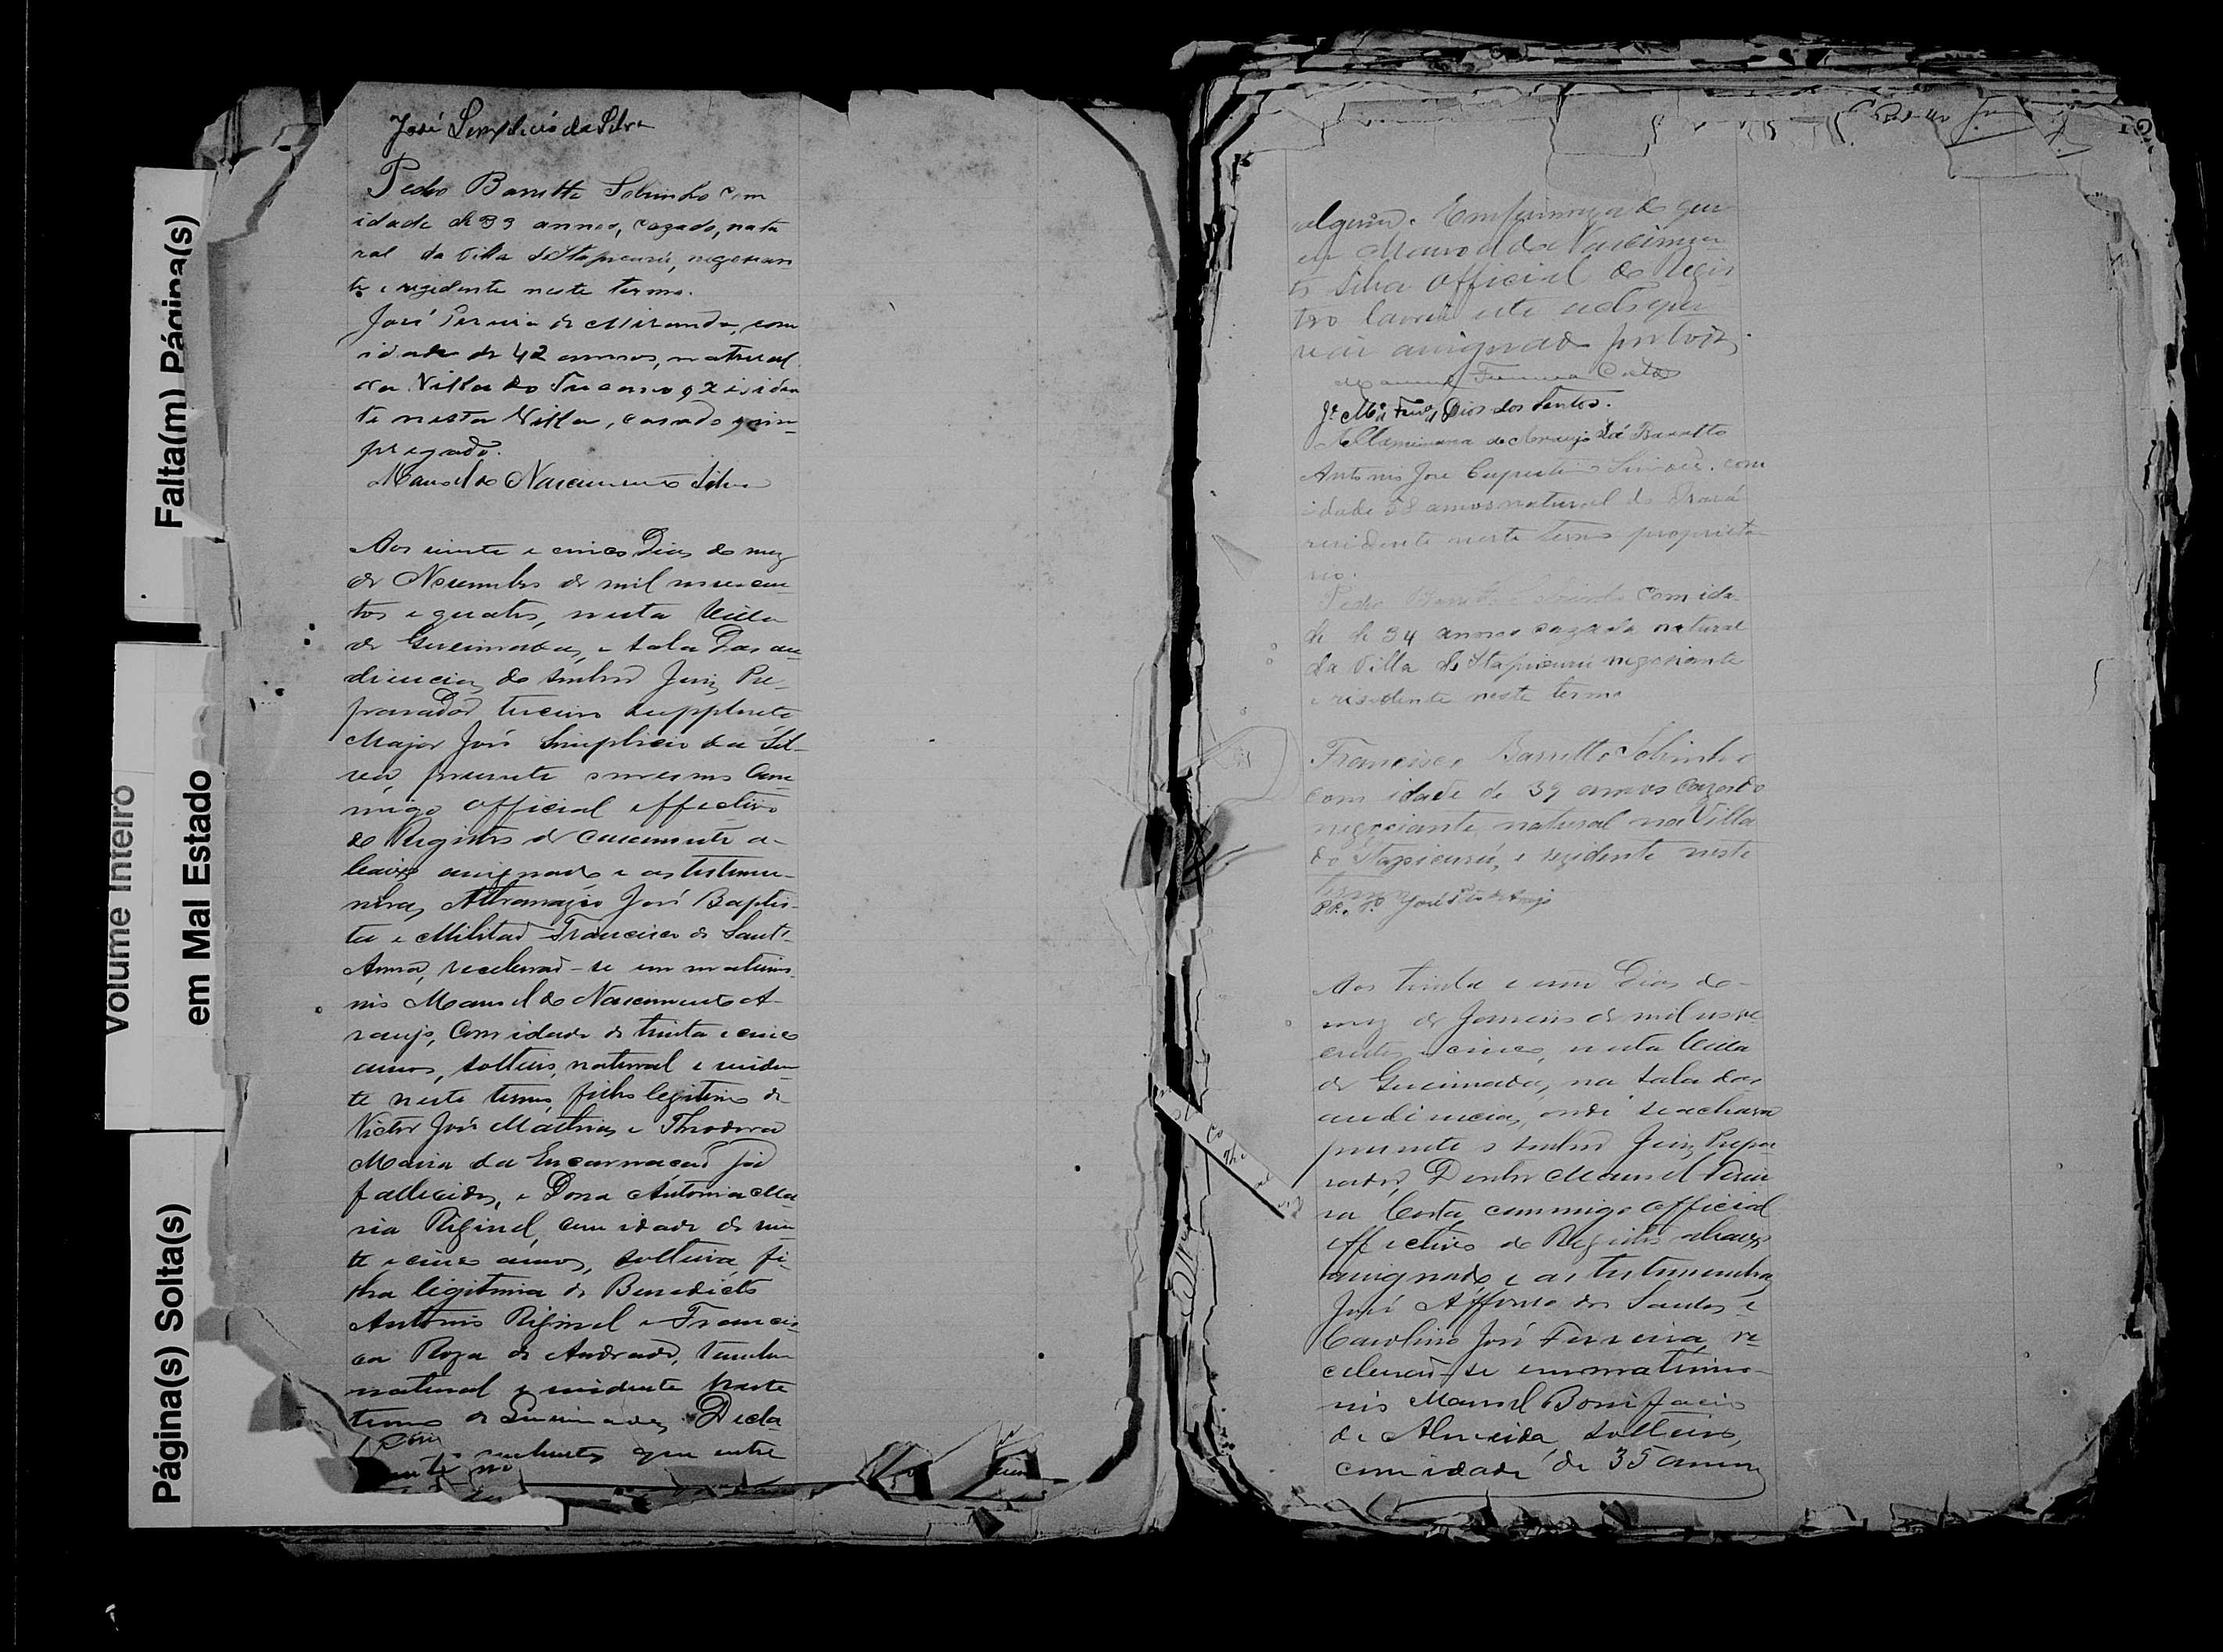 José Simplicio da Silva
Pedro Barretto Sobrinho com
idade de 33 annos, cazado, natu
ral da Villa de Itapicurú, negocian-
te e rezidente neste termo.
José Pereira de Miranda, com
idade de 42 annos, natural
da Villa do Tucano, e residen
te nesta Villa, casado, em-
pregado.
Manoel do Nascimento Silva
Aos vinte e cinco Dias do mez
de Novembro de mil novecen-
tos e quatro, nesta Villa
de Queimadas, e sala Das au-
diencias do senhor Juiz Pre-
parador terceiro supplente
Major José Simplicio da Sil-
va, presente o mesmo Com-
migo official effectivo
do Registro de casamento a-
baixo assignado e as testemu-
nhas, José Baptis-
ta e Militão Francisco de Sant'-
Anna, receberão-se em matrimo-
nio Manoel do Nascimento A-
raujo, Com idade de trinta e cinco
annos, solteiro, natural e residen-
te neste termo, filho legitimo de
Victor José Mathias e Theodora
Maria da Encarnacão já
fallecidos, e Dona Antonia Ma-
ria Riginel, com idade de vin-
te e cinco annos, solteira, fi-
lha legitima de Benedicto
Antonio Riginel e Francis-
ca Roza de Andrade, tambem
natural e residente neste
termo de Queimadas. Decla-
que entre
algum. Em firmeza do que
eu Manoel do Nascimen
to Silva official do Regis-
tro lavrei este acto que
vai assignado pelo Juiz
Manoel Ferreira Costa
Dios dos Santos.
de Araujo Sá Barretto
Antonio José Simões, com
idade 58 annos natural do Irará
residente neste termo proprieta
rio.
Pedro Barretto Sobrinho com ida-
de de 34 annos cazado natural
da Villa de Itapicurú negociante
e residente neste termo
Francisco Barretto Sobrinho
com idade de 39 annos cazado
negociante, natural na Villa
do Itapicurú, e rezidente neste
termo
Aos trinta e um Dias do
mez de Janeiro de mil nove
centos e cinco, nesta Villa
de Queimadas, na sala das
audiencias, onde se achava
presente o senhor Juiz Prepa
rador, Doutor Manoel Ferrei
ra Costa commigo official
effectivo do Registro abaixo
assignado e as testemunhas
José Affonso dos Santos e
Carolino José Ferreira, re-
ceberão-se em matrimo-
nio Manoel Bonifacio
de Almeida, solteiro,
com idade de 35 annos
Falta(m) Página(s)
Volume Inteiro
em Mal Estado
Página(s) Solta(s)